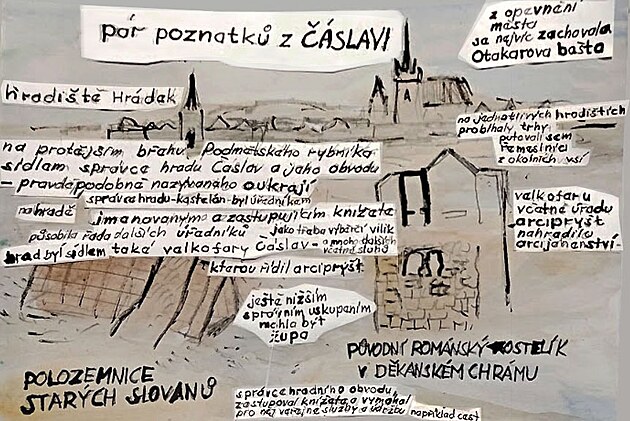 pár poznatků z ČÁSLAVI
z opevnění
města
se nejvíc zachovala
Otakarova bašta
hradiště Hrádek
na jednotlivých hradištích
probíhaly trhy
putovali sem
řemeslníci
z okolních vsí
na protějším břehu Podměstského rybníka
sídlem správce hradu Čáslav a jeho obvodu
- pravděpodobně nazývaného okrají
správce hradu-kastelán-byl úředníkem
na hradě jmenovaným a zastupujícím knížete
působila řada dalších úředníků jako třeba výběrčí vilik
a mnoho dalších
včetně sluhů
hrad byl sídlem také velkofary Čáslav-
kterou řídil arcipryšt
velkofaru
včetně úřadu
arcipryšt
nahradilo
arcijáhenství-
ještě nižším
správním uskupením
mohla být
župa
PŮVODNÍ ROMÁNSKÝ KOSTELÍK
V DĚKANSKÉM CHRÁMU
POLOZEMNICE
STARÝCH SLOVANŮ
správce hradního obvodu
zastupoval knížete a vymáhal
pro něj veřejné služby a údržbu například cest